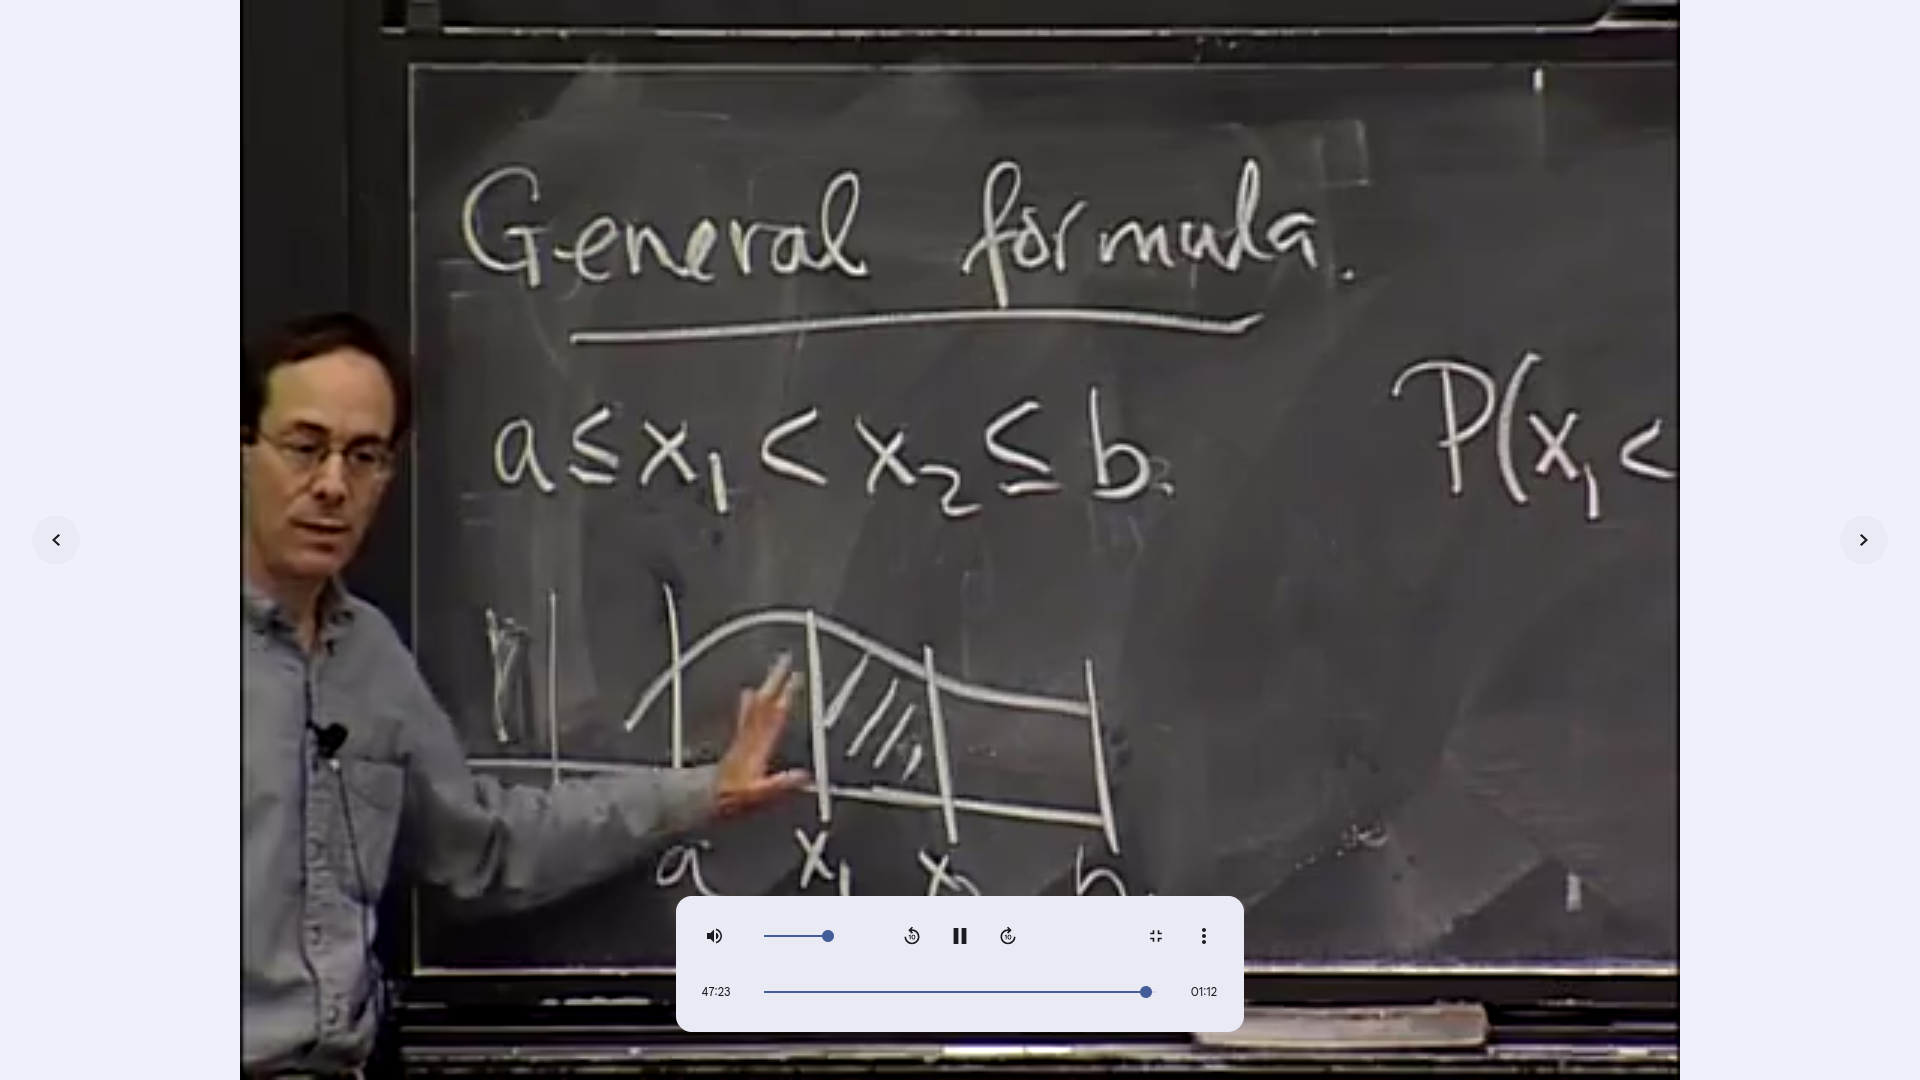 General formula.
a ≤ x₁ < x₂ ≤ b.
P(x₁ <
a x₁ x₂ b
10 10
47:23 01:12